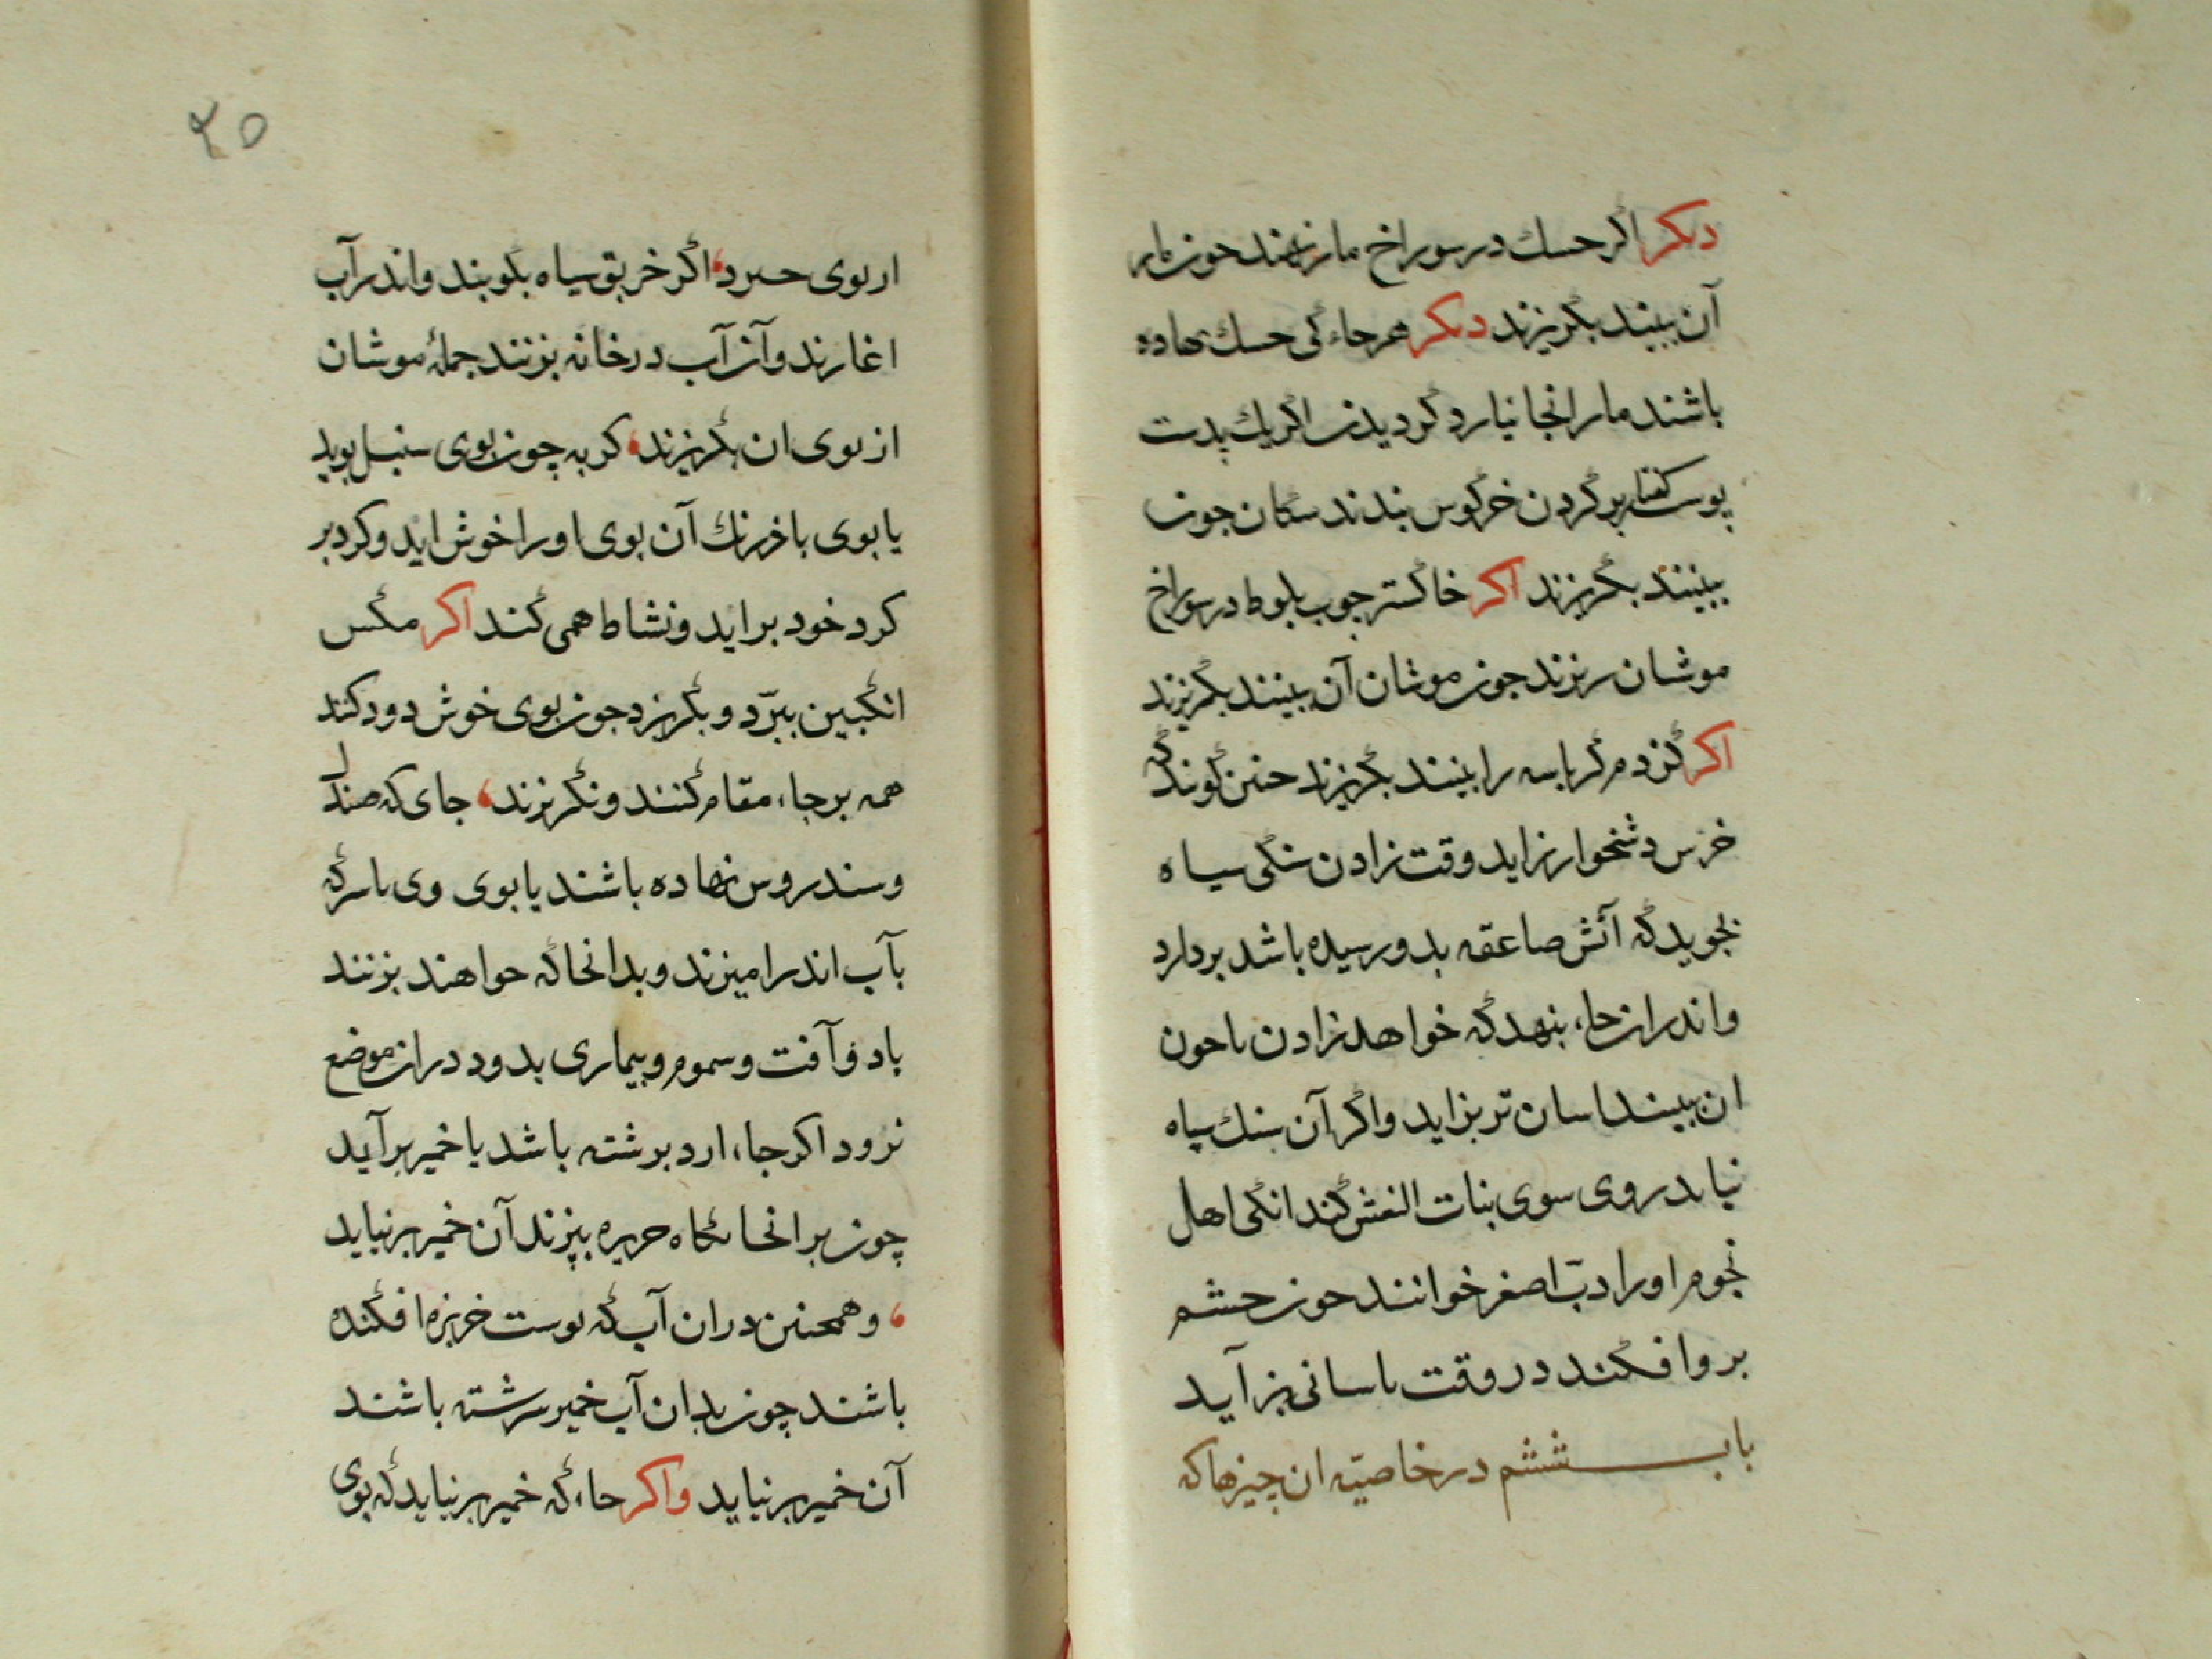 دیکر اکر حسك در سوراخ مار نهند حون مار
آن ببیند بکریزند دیکر هر جاء کی حسك نهاده
باشند مار انجا نیارد کردیدن اکر یك پدست
پوست کفتار بر کردن خرکوس بندند سکان جون
ببینند بکریزند اکر خاکستر جوب بلوط در سوراخ
موشان ریزند جون موشان آن ببینند بکریزند
اکر کزدم کرباسه را ببینند بکریزند حنین کویند که
خرس دشخوار زاید وقت زادن سنکی سیاه
بجوید که آتش صاعقه بدو رسیده باشد بردارد
واندران جاء بنهد که خواهد زادن تا حون
ان ببیند اسان تر بزاید واکر آن سنك سیاه
نیابد روی سوی بنات النعش کند انکی اهل
نجوم اورا دبّ اصغر خوانند حون حشم
برو افکند در وقت باسانی بزآید
باب ششم در خاصیّه ان چیزها که
۲۵
از بوی حیزد اکر خربق سیاه بکوبند واندر آب
اغارند وآن آب در خانه بزنند جملهٔ موشان
از بوی ان بکریزند کربه چون بوی سنبل بوید
یا بوی باذرنك آن بوی اورا خوش اید وکرد بر
کرد خود براید ونشاط همی کند اکر مکس
انکبین ببرّد وبکریزد جون بوی خوش دود کنند
همه برجاء مقام کنند ونکریزند جای که صندل
وسندروس نهاده باشند یا بوی وی با سرکه
بآب اندر امیزند وبدانجا که حواهند بزنند
باد وآفت وسموم وبیماری بدود دران موضع
نرود اکر جاء ارد برشته باشد یا خمیر برآید
چون بر انجایکاه حریره بپزند آن خمیر برنیاید
وهمحنین دران آب که بوست خربزه افکنده
باشند چون بدان آب خمیر سرشته باشند
آن خمیر برنیاید واکر جاء که خمیر برنیاید که بوی